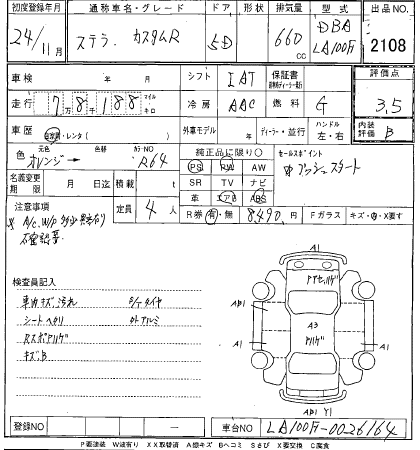 初度登録年月 通称車名・グレード ドア 形状 排気量 型式 出品NO.
24/11月 ステラ カスタムR 5D 660cc DBA LA100F 2108
車検 年 月 シフト IAT 保証書 評価点
走行 7万8千188 マイル キロ 冷房 AAC 燃料 G 3.5
車歴 自家用・レンタ( ) 外車モデル 年 ディーラー・並行 ハンドル 左・右 内装評価 B
色 オレンジ→ 色替 カラーNO R64 純正品に限り○ セールスポイント
PS PW AW プッシュスタート
名義変更期限 月 日迄 積載 t SR TV ナビ
定員 4人 革 エアB ABS
注意事項 R券 有・無 8490円 Fガラス キズ・X要す
※A/C、W/P
検査員記入
車内キズ汚れ タイヤ
シートヘタリ アルミ
キズB
A1
AB1 A3 A1
A1
AB1 Y1
登録NO 車台NO LA100F-0026164
P要塗装 W波有り XX取替済 A線キズ Bヘコミ Sさび X要交換 C腐食